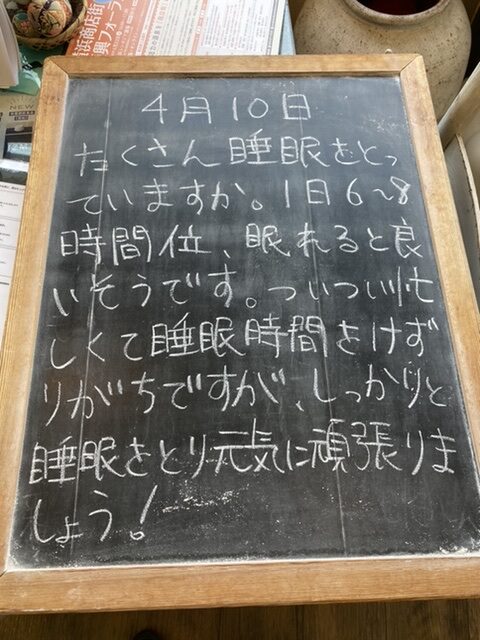 4月10日
たくさん睡眠をとっ
ていますか。1日6〜8
時間位、眠れると良
いそうです。ついつい忙
しくて睡眠時間をけず
りがちですが、しっかりと
睡眠をとり元気に頑張りま
しょう!
浜商店街
興フォーラ
NEW